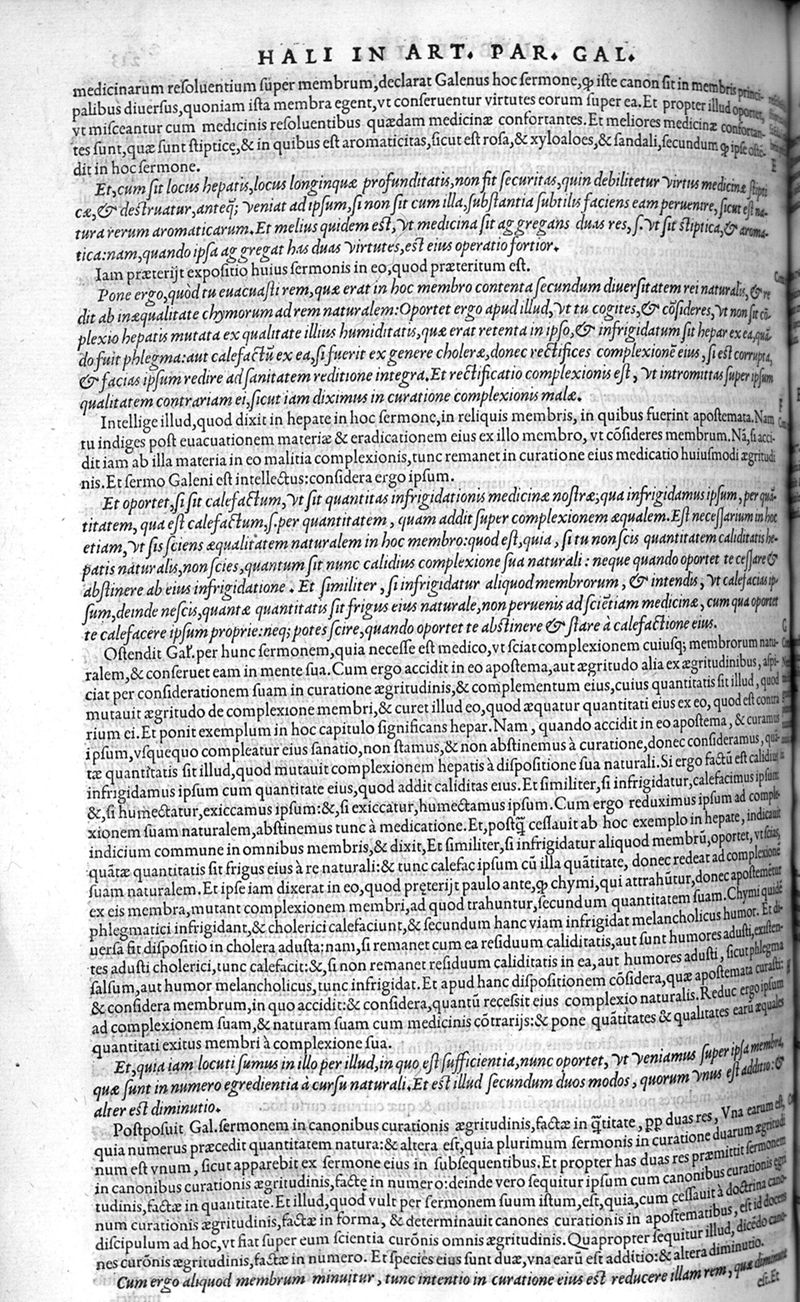 HALI IN ART. PAR. GAL.
medicinarum resoluentium super membrum, declarat Galenus hoc sermone, ꝙ iste canon sit in membris princi-
palibus diuersus, quoniam ista membra egent, vt conseruentur virtutes eorum super ea. Et propter illud oportet,
vt misceantur cum medicinis resoluentibus quædam medicinæ confortantes. Et meliores medicinæ confortan-
tes sunt, quæ sunt stiptice, & in quibus est aromaticitas, sicut est rosa, & xyloaloes, & sandali, secundum ꝙ ipse osten-
dit in hoc sermone.
Et, cum sit locus hepatis, locus longinquæ profunditatis, non fit securitas, quin debilitetur virtus medicinæ stipti
cæ, & destruatur, anteq̃; veniat ad ipsum, si non sit cum illa, substantia subtilis faciens eam peruenire, sicut est na-
tura rerum aromaticarum. Et melius quidem est, vt medicina sit aggregans duas res, s. vt sit stiptica, & aroma-
tica: nam, quando ipsa aggregat has duas virtutes, est eius operatio fortior.
Iam præterijt expositio huius sermonis in eo, quod præteritum est.
Pone ergo, quòd tu euacuasti rem, quæ erat in hoc membro contenta secundum diuersitatem rei naturalis, & re
dit ab inæqualitate chymorum ad rem naturalem: Oportet ergo apud illud, vt tu cogites, & cõsideres, vt non sit cõ-
plexio hepatis mutata ex qualitate illius humiditatis, quæ erat retenta in ipso, & infrigidatum sit hepar ex ea, quã-
do fuit phlegma: aut calefactũ ex ea, si fuerit ex genere choleræ, donec rectifices complexionẽ eius, si est corrupta,
& facias ipsum redire ad sanitatem reditione integra. Et rectificatio complexionis est, vt intromittas super ipsum
qualitatem contrariam ei, sicut iam diximus in curatione complexionis malæ.
Intellige illud, quod dixit in hepate in hoc sermone, in reliquis membris, in quibus fuerint apostemata. Nam
tu indiges post euacuationem materiæ & eradicationem eius ex illo membro, vt cõsideres membrum. Nã, si acci-
dit iam ab illa materia in eo malitia complexionis, tunc remanet in curatione eius medicatio huiusmodi ægritudi
nis. Et sermo Galeni est intellectus: considera ergo ipsum.
Et oportet, si sit calefactum, vt sit quantitas infrigidationis medicinæ nostræ; qua infrigidamus ipsum, per quã-
titatem, qua est calefactum, s. per quantitatem, quam addit super complexionem æqualem. Est necessarium in hoc
etiam, vt sis sciens æqualitatem naturalem in hoc membro: quod est, quia, si tu non scis quantitatem caliditatis he-
patis naturalis, non scies, quantum sit nunc calidius complexione sua naturali: neque quando oportet te cessare &
abstinere ab eius infrigidatione. Et similiter, si infrigidatur aliquod membrorum, & intendis, vt calefacias ip-
sum, deinde nescis, quantæ quantitatis sit frigus eius naturale, non peruenis ad sciẽtiam medicinæ, cum qua oportet
te calefacere ipsum proprie: neq; potes scire, quando oportet te abstinere & stare à calefactione eius.
Ostendit Gal̃. per hunc sermonem, quia necesse est medico, vt sciat complexionem cuiusq; membrorum natu-
ralem, & conseruet eam in mente sua. Cum ergo accidit in eo apostema, aut ægritudo alia ex ægritudinibus, aspi-
ciat per considerationem suam in curatione ægritudinis, & complementum eius, cuius quantitatis sit illud, quod
mutauit ægritudo de complexione membri, & curet illud eo, quod æquatur quantitati eius ex eo, quod est contra
rium ei. Et ponit exemplum in hoc capitulo significans hepar. Nam, quando accidit in eo apostema, & curamus
ipsum, vsquequo compleatur eius sanatio, non stamus, & non abstinemus à curatione, donec consideramus, quã-
tæ quantitatis sit illud, quod mutauit complexionem hepatis à dispositione sua naturali. Si ergo factũ est calidius
infrigidamus ipsum cum quantitate eius, quod addit caliditas eius. Et similiter, si infrigidatur, calefacimus ipsum
&, si humectatur, exiccamus ipsum: &, si exiccatur, humectamus ipsum. Cum ergo reduximus ipsum ad comple-
xionem suam naturalem, abstinemus tunc à medicatione. Et, postq̃ cessauit ab hoc exemplo in hepate, indicauit
indicium commune in omnibus membris, & dixit, Et similiter, si infrigidatur aliquod membrũ, oportet, vt scias,
quãtæ quantitatis sit frigus eius à re naturali: & tunc calefac ipsum cũ illa quãtitate, donec redeat ad complexionẽ
suam naturalem. Et ipse iam dixerat in eo, quod preterijt paulo ante, ꝙ chymi, qui attrahũtur, donec apostemẽtur
ex eis membra, mutant complexionem membri, ad quod trahuntur, secundum quantitatem suam. Chymi quidẽ
phlegmatici infrigidant, & cholerici calefaciunt, & secundum hanc viam infrigidat melancholicus humor. Et di-
uersa fit dispositio in cholera adusta: nam, si remanet cum ea residuum caliditatis, aut sunt humores adusti, existen-
tes adusti cholerici, tunc calefacit: &, si non remanet residuum caliditatis in ea, aut humores adusti, sicut phlegma
salsum, aut humor melancholicus, tunc infrigidat. Et apud hanc dispositionem cõsidera, quæ apostemata curasti:
& considera membrum, in quo accidit: & considera, quantũ recessit eius complexio naturalis. Reduc ergo ipsum
ad complexionem suam, & naturam suam cum medicinis cõtrarijs: & pone quãtitates & qualitates earũ æquales
quantitati exitus membri à complexione sua.
Et, quia iam locuti sumus in illo per illud, in quo est sufficientia, nunc oportet, vt veniamus super ipsa membra,
quæ sunt in numero egredientia à cursu naturali. Et est illud secundum duos modos, quorum vnus est additio: &
alter est diminutio.
Postposuit Gal. sermonem in canonibus curationis ægritudinis, factæ in q̃titate, pp duas res, Vna earum est,
quia numerus præcedit quantitatem natura: & altera est, quia plurimum sermonis in curatione duarum ægritudi
num est vnum, sicut apparebit ex sermone eius in subsequentibus. Et propter has duas res præmittit sermonem
in canonibus curationis ægritudinis, factæ in numero: deinde vero sequitur ipsum cum canonibus curationis ægri
tudinis, factæ in quantitate. Et illud, quod vult per sermonem suum istum, est, quia, cum cessauit à doctrina cano-
num curationis ægritudinis, factæ in forma, & determinauit canones curationis in apostematibus, est id docens
discipulum ad hoc, vt siat super eum scientia curõnis omnis ægritudinis. Quapropter sequitur illud, dicẽdo cano-
nes curõnis ægritudinis, factæ in numero. Et species eius sunt duæ, vna earũ est additio: & altera diminutio.
Cum ergo aliquod membrum minuitur, tunc intentio in curatione eius est reducere illam rem, quæ diminuit
est. Et